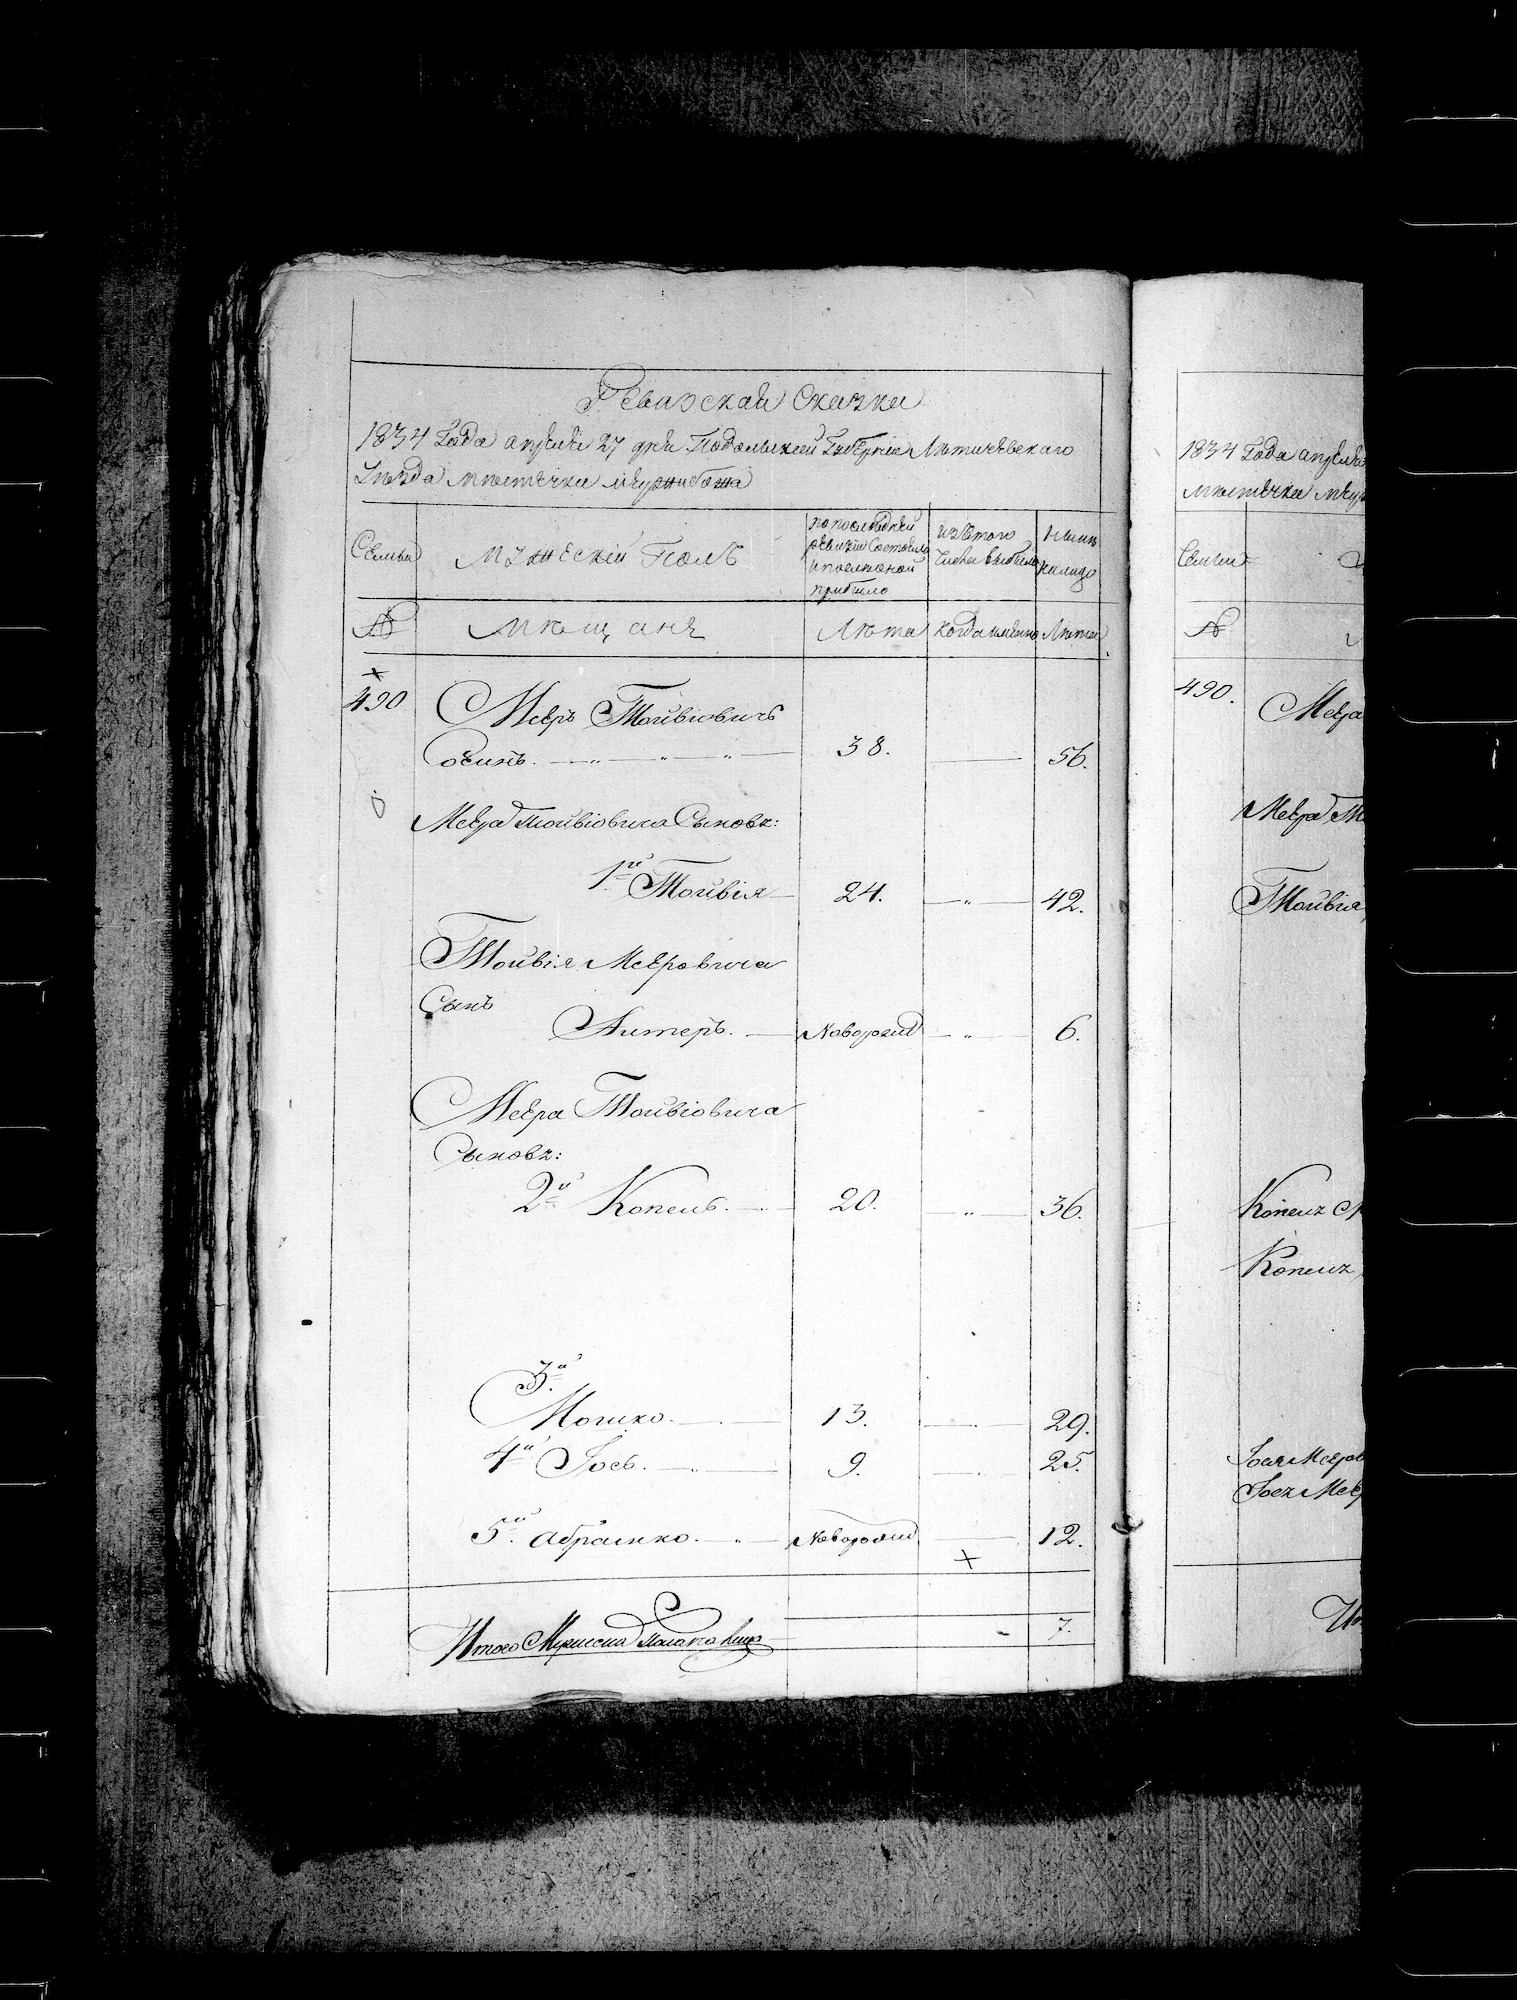 Ревизская Сказка
1834 Года апреля 27 дня Подольской Губернии Летичевского
Уезда местечка Меджибожа
Семьи
Мужеский Полъ
по последней
ревизии Состояло
и после оной
прибыло
изъ того
числа выбыло
Ныне
налицо
№
Мещане
Лета
когда именно
Лета
490
Мееръ Тойвіовичъ
38.
56.
Меера Тойвіовича Сыновья:
1й Тойвія
24.
42.
Тойвія Мееровича
Сынъ
Антеръ.
Новорожд
6.
Меера Тойвіовича
Сыновья:
2й Копель.
20.
36.
3й
Мошко.
13.
29.
4й Іось.
9.
25.
5й Абрамко.
Новорожд
12.
Итого Мужеска пола на лицо
7.
1834 Года апреля
местечка Ме
Семьи
№
490.
Меера
Меера Т
Тойвія
Копеля М
Копеля
Іося Мееров
Іося Меер